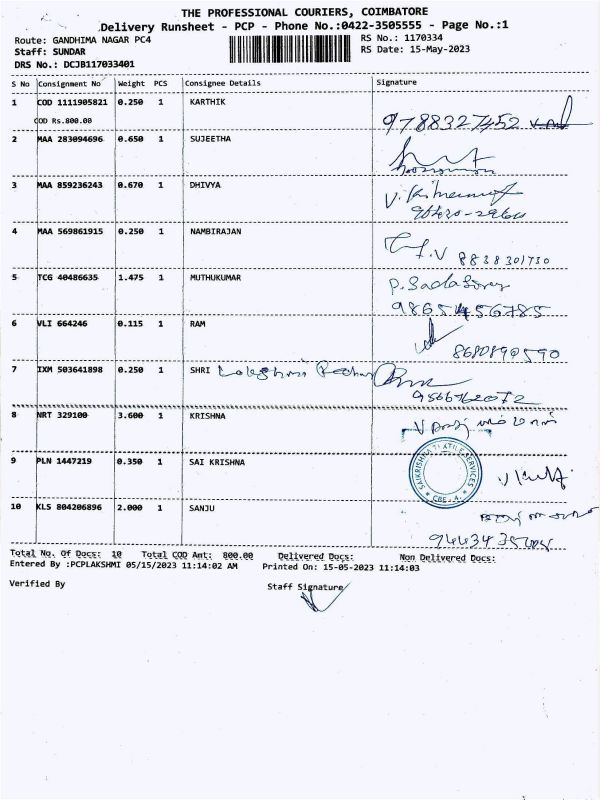 THE PROFESSIONAL COURIERS, COIMBATORE
Delivery Runsheet - PCP - Phone No.:0422-3505555 - Page No.:1
Route: GANDHIMA NAGAR PC4 RS No.: 1170334
Staff: SUNDAR RS Date: 15-May-2023
DRS No.: DCJB117033401
S No Consignment No Weight PCS Consignee Details Signature
1 COD 1111905821 0.250 1 KARTHIK
COD Rs.800.00 9788327452
2 MAA 283094696 0.650 1 SUJEETHA
3 MAA 859236243 0.670 1 DHIVYA
4 MAA 569861915 0.250 1 NAMBIRAJAN
8838301730
5 TCG 40486635 1.475 1 MUTHUKUMAR
9865456785
6 VLI 664246 0.115 1 RAM
8680890590
7 IXM 503641898 0.250 1 SHRI
9566762072
8 NRT 329100 3.600 1 KRISHNA
9 PLN 1447219 0.350 1 SAI KRISHNA
SAIKRISHNA TEXTILE SERVICES
CBE - 4.
10 KLS 804206896 2.000 1 SANJU
Total No. Of Docs: 10 Total COD Amt: 800.00 Delivered Docs: Non Delivered Docs:
Entered By :PCPLAKSHMI 05/15/2023 11:14:02 AM Printed On: 15-05-2023 11:14:03
Verified By Staff Signature